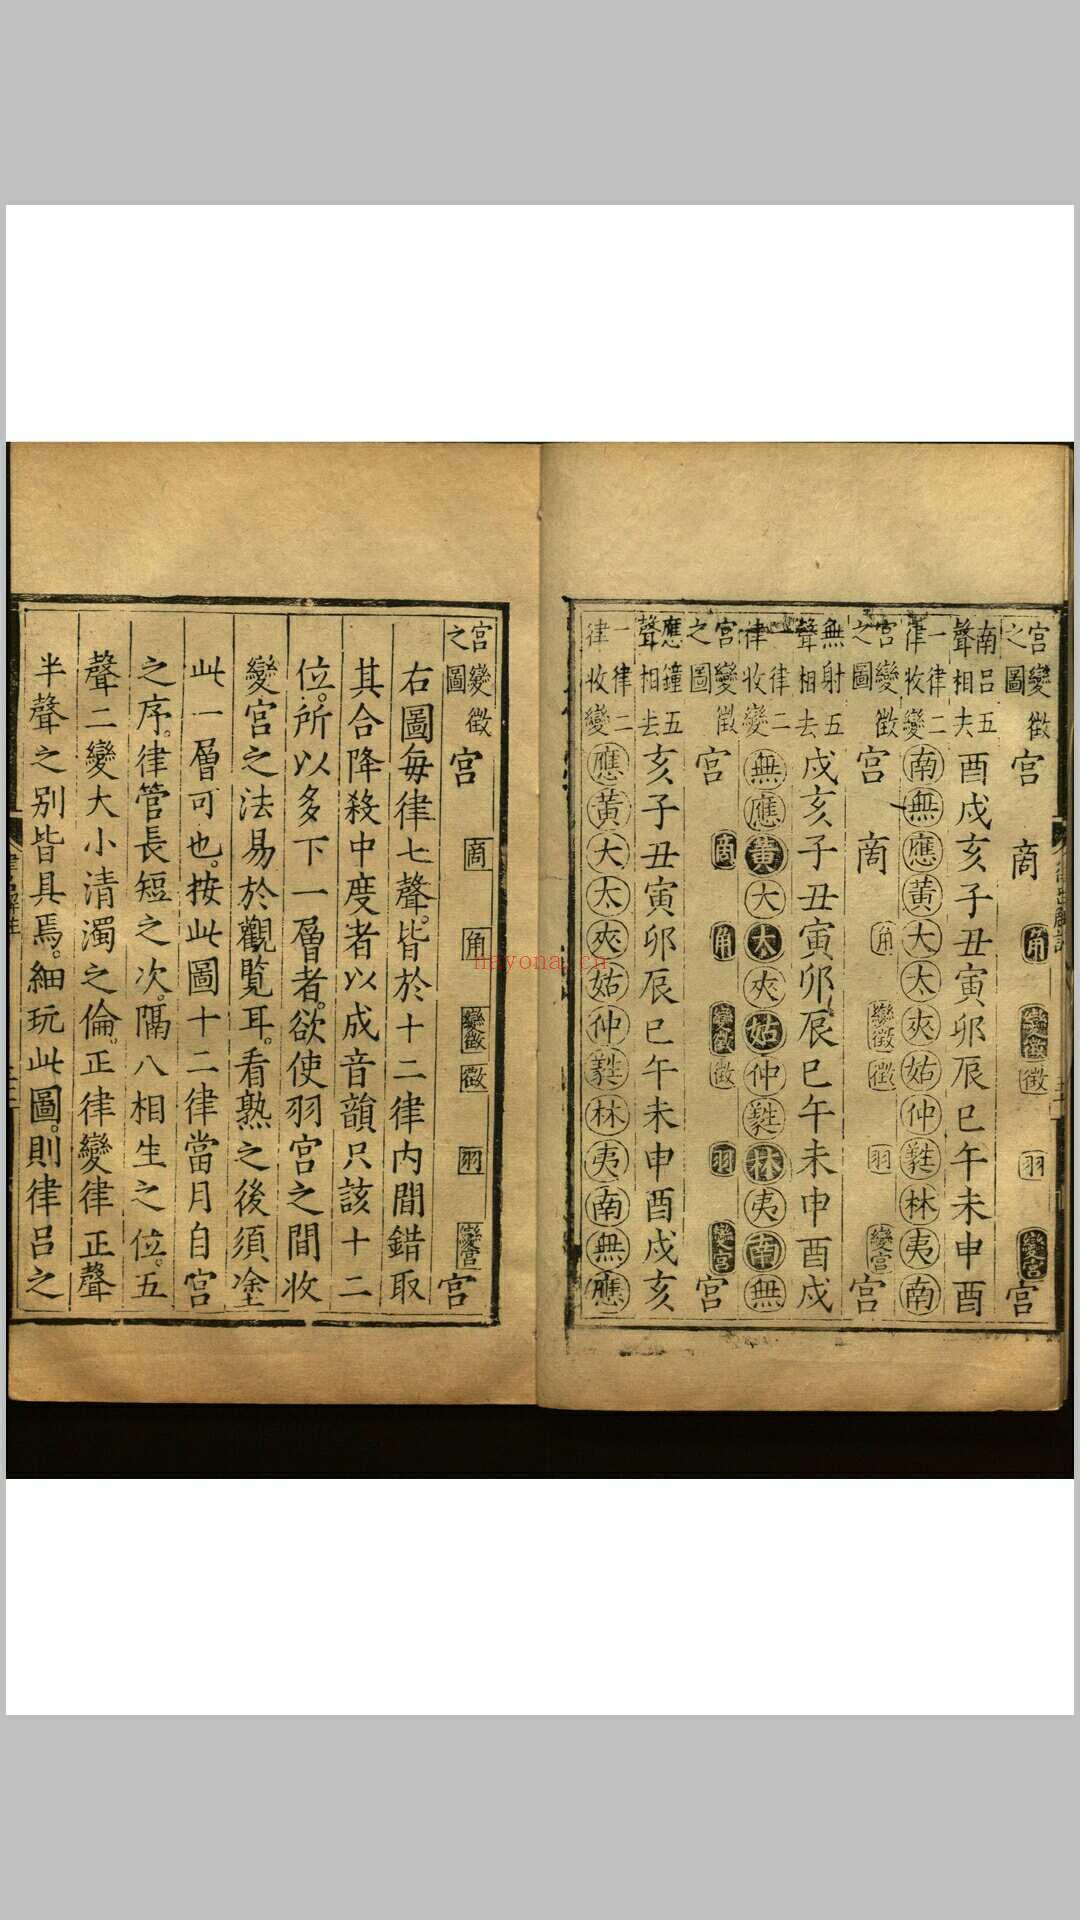 宮變徵之圖 宮 商 角 變徵 徵 羽 變宮 宮
南呂五聲相去 酉戌亥子丑寅卯辰巳午未申酉
一律二律收變 南無應黃大太夾姑仲蕤林夷南
宮變徵之圖 宮 商 角 變徵 徵 羽 變宮 宮
無射五聲相去 戌亥子丑寅卯辰巳午未申酉戌
一律二律收變 無應黃大太夾姑仲蕤林夷南無
宮變徵之圖 宮 商 角 變徵 徵 羽 變宮 宮
應鐘五聲相去 亥子丑寅卯辰巳午未申酉戌亥
一律二律收變 應黃大太夾姑仲蕤林夷南無應
宮變徵之圖 宮 商 角 變徵 徵 羽 變宮 宮
右圖每律七聲。皆於十二律內間錯取
其合降殺中度者以成音韻只該十二
位。所以多下一層者。欲使羽宮之間收
變宮之法易於觀覽耳。看熟之後須塗
此一層可也。按此圖十二律當月自宮
之序。律管長短之次。隔八相生之位。五
聲二變大小清濁之倫。正律變律正聲
半聲之別皆具焉。細玩此圖。則律呂之
nayona.cn